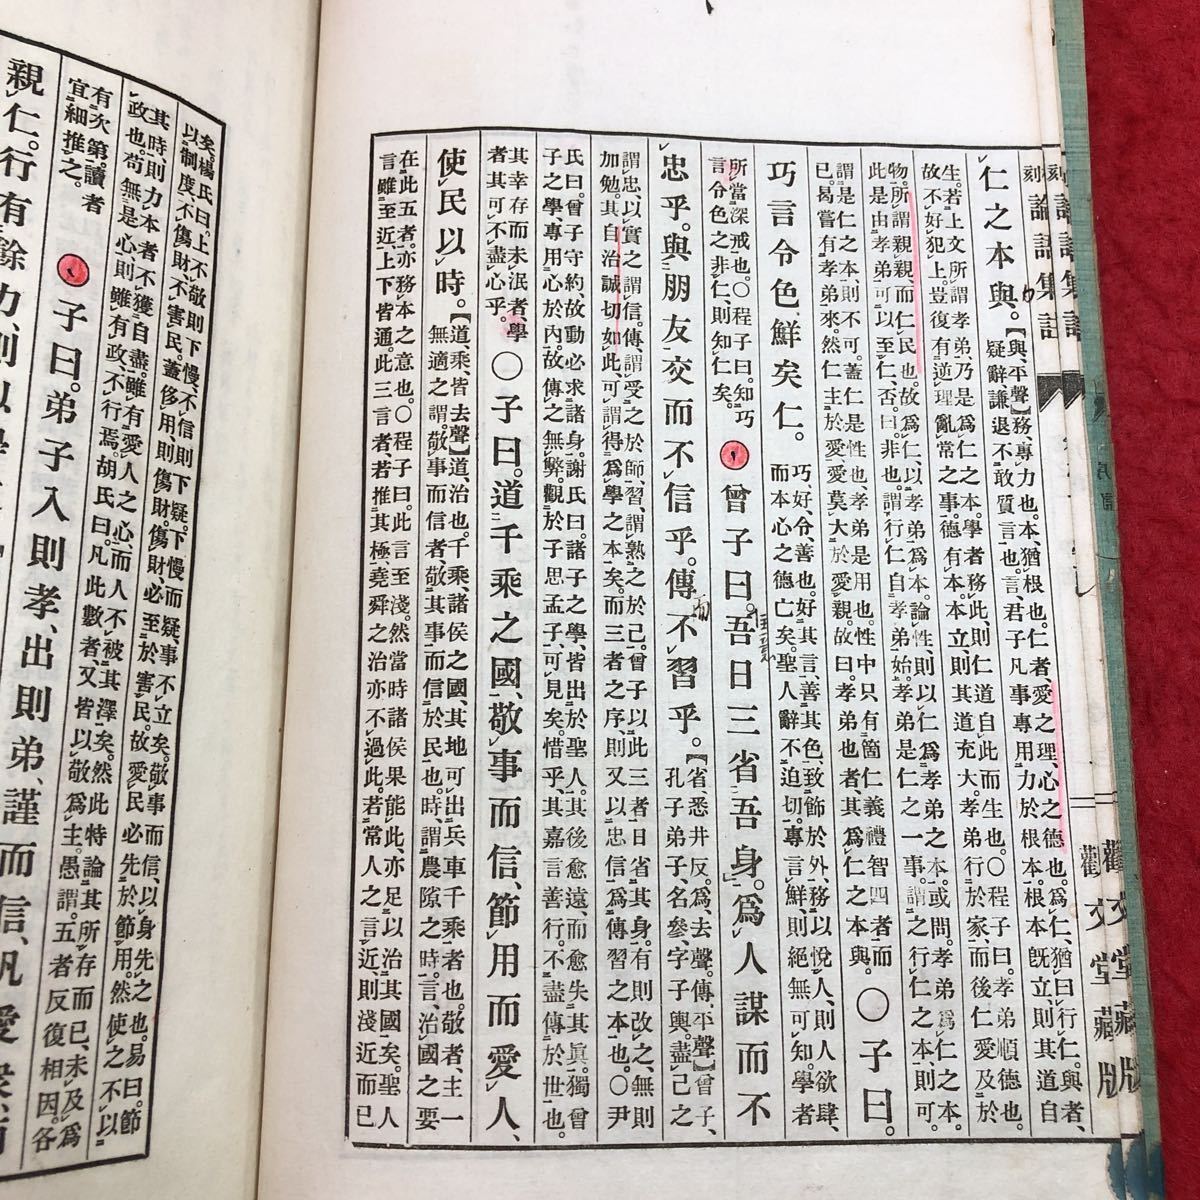 刻論語集註
觀文堂藏版
仁之本與。【與、平聲】務、專力也。本、猶根也。仁者、愛之理、心之德也。爲仁、猶曰行仁。與者、
疑辭、謙退不敢質言也。言、君子凡事專用力於根本。根本既立、則其道自
生。若上文所謂孝弟、乃是爲仁之本。學者務此、則仁道自此而生也。〇程子曰。孝弟順德也。
故不好犯上。豈復有逆理亂常之事。德有本。本立則其道充大。孝弟行於家、而後仁愛及於
物。所謂親親而仁民也。故爲仁以孝弟爲本。論性、則以仁爲孝弟之本。或問。孝弟爲仁之本。
此是由孝弟可以至仁否。曰。非也。謂行仁自孝弟始。孝弟是仁之一事。謂之行仁之本則可。
謂是仁之本、則不可。蓋仁是性也、孝弟是用也。性中只有箇仁義禮智四者而
已。曷嘗有孝弟來。然仁主於愛、愛莫大於愛親。故曰。孝弟也者、其爲仁之本與。
〇子曰。
巧言令色鮮矣仁。
巧、好。令、善也。好其言、善其色、致飾於外、務以悅人、則人欲肆、
而本心之德亡矣。聖人辭不迫切。專言鮮、則絕無可知。學者
所當深戒也。〇程子曰。知巧
言令色之非仁、則知仁矣。
曾子曰。吾日三省吾身。爲人謀而不
忠乎。與朋友交而不信乎。傳不習乎。
【省、悉井反。爲、去聲。傳、平聲】曾子、
孔子弟子、名參、字子輿。盡己之
謂忠、以實之謂信。傳、謂受之於師、習、謂熟之於己。曾子以此三者日省其身。有則改之、無則
加勉。其自治誠切如此、可謂得爲學之本矣。而三者之序、則又以忠信爲傳習之本也。〇尹
氏曰。曾子守約。故動必求諸身。謝氏曰。諸子之學、皆出於聖人。其後愈遠、而愈失其眞。獨曾
子之學、專用心於內。故傳之無弊。觀於子思孟子、可見矣。惜乎、其嘉言善行、不盡傳於世也。
其幸存而未泯者、學
者其可不盡心乎。
〇子曰。道千乘之國、敬事而信、節用而愛人、
使民以時。
【道、乘、皆去聲】道、治也。千乘、諸侯之國、其地可出兵車千乘者也。敬者、主一
無適之謂。敬事而信者、敬其事而信於民也。時、謂農隙之時。言、治國之要
在此五者。亦務本之意也。〇程子曰。此言至淺。然當時諸侯果能此、亦足以治其國矣。聖人
言雖至近、上下皆通。此三言者、若推其極、堯舜之治亦不過此。若常人之言近、則淺近而已
矣。楊氏曰。上不敬則下慢、不信則下疑。下慢而疑、事不立矣。敬事而信、以身先之也。易曰。節
以制度、不傷財、不害民。蓋侈用則傷財。傷財、必至於害民。故愛民必先於節用。然使之不以
其時、則力本者不獲自盡。雖有愛人之心、而人不被其澤矣。然此特論其所存而已。未及爲
政也。苟無是心、則雖有政、不行焉。胡氏曰。凡此數者、又皆以敬爲主。愚謂。五者反復相因。各
有次第。讀者
宜細推之。
子曰。弟子入則孝、出則弟、謹而信、汎愛衆、而
親仁。行有餘力、則以